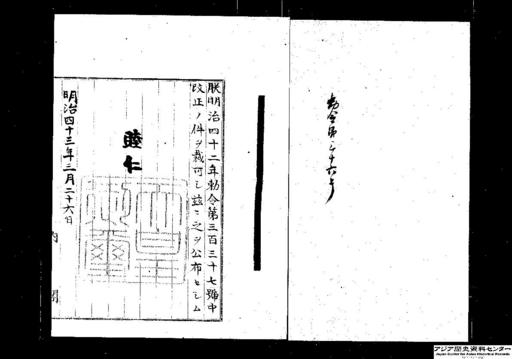 勅令第三十六号
朕明治四十二年勅令第三百三十七號中
改正ノ件ヲ裁可シ茲ニ之ヲ公布セシム
睦仁
明治四十三年三月二十六日
内閣
アジア歴史資料センター
Japan Center for Asian Historical Records